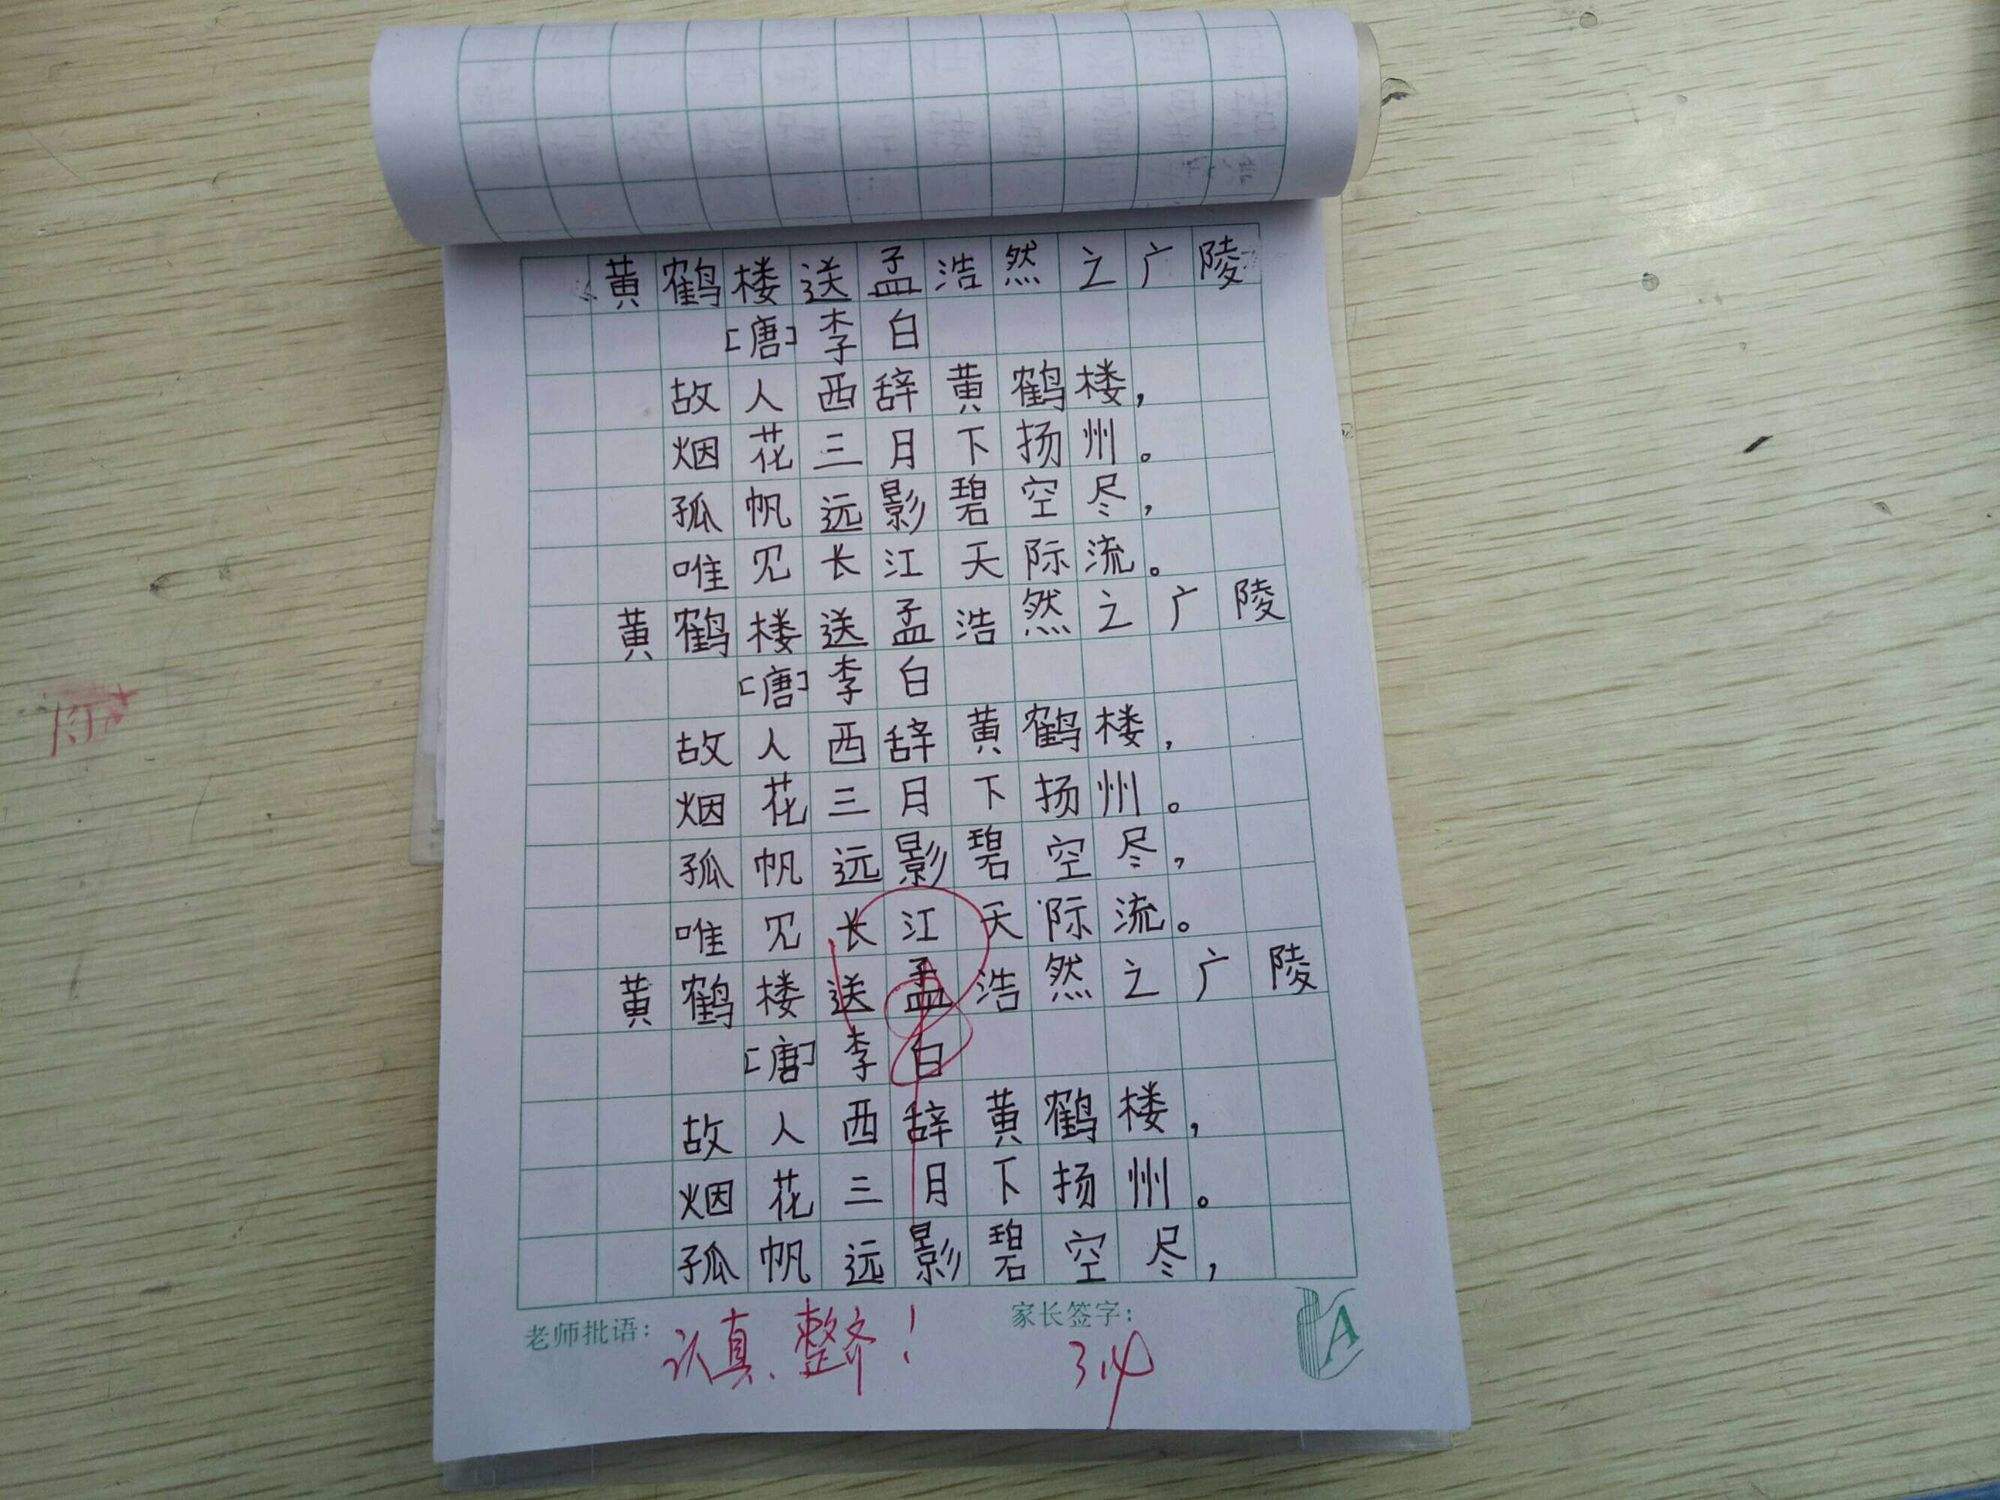 黄鹤楼送孟浩然之广陵
[唐]李白
故人西辞黄鹤楼，
烟花三月下扬州。
孤帆远影碧空尽，
唯见长江天际流。
黄鹤楼送孟浩然之广陵
[唐]李白
故人西辞黄鹤楼，
烟花三月下扬州。
孤帆远影碧空尽，
唯见长江天际流。
黄鹤楼送孟浩然之广陵
[唐]李白
故人西辞黄鹤楼，
烟花三月下扬州。
孤帆远影碧空尽，
老师批语： 认真、整齐！ 家长签字：
3.14
A